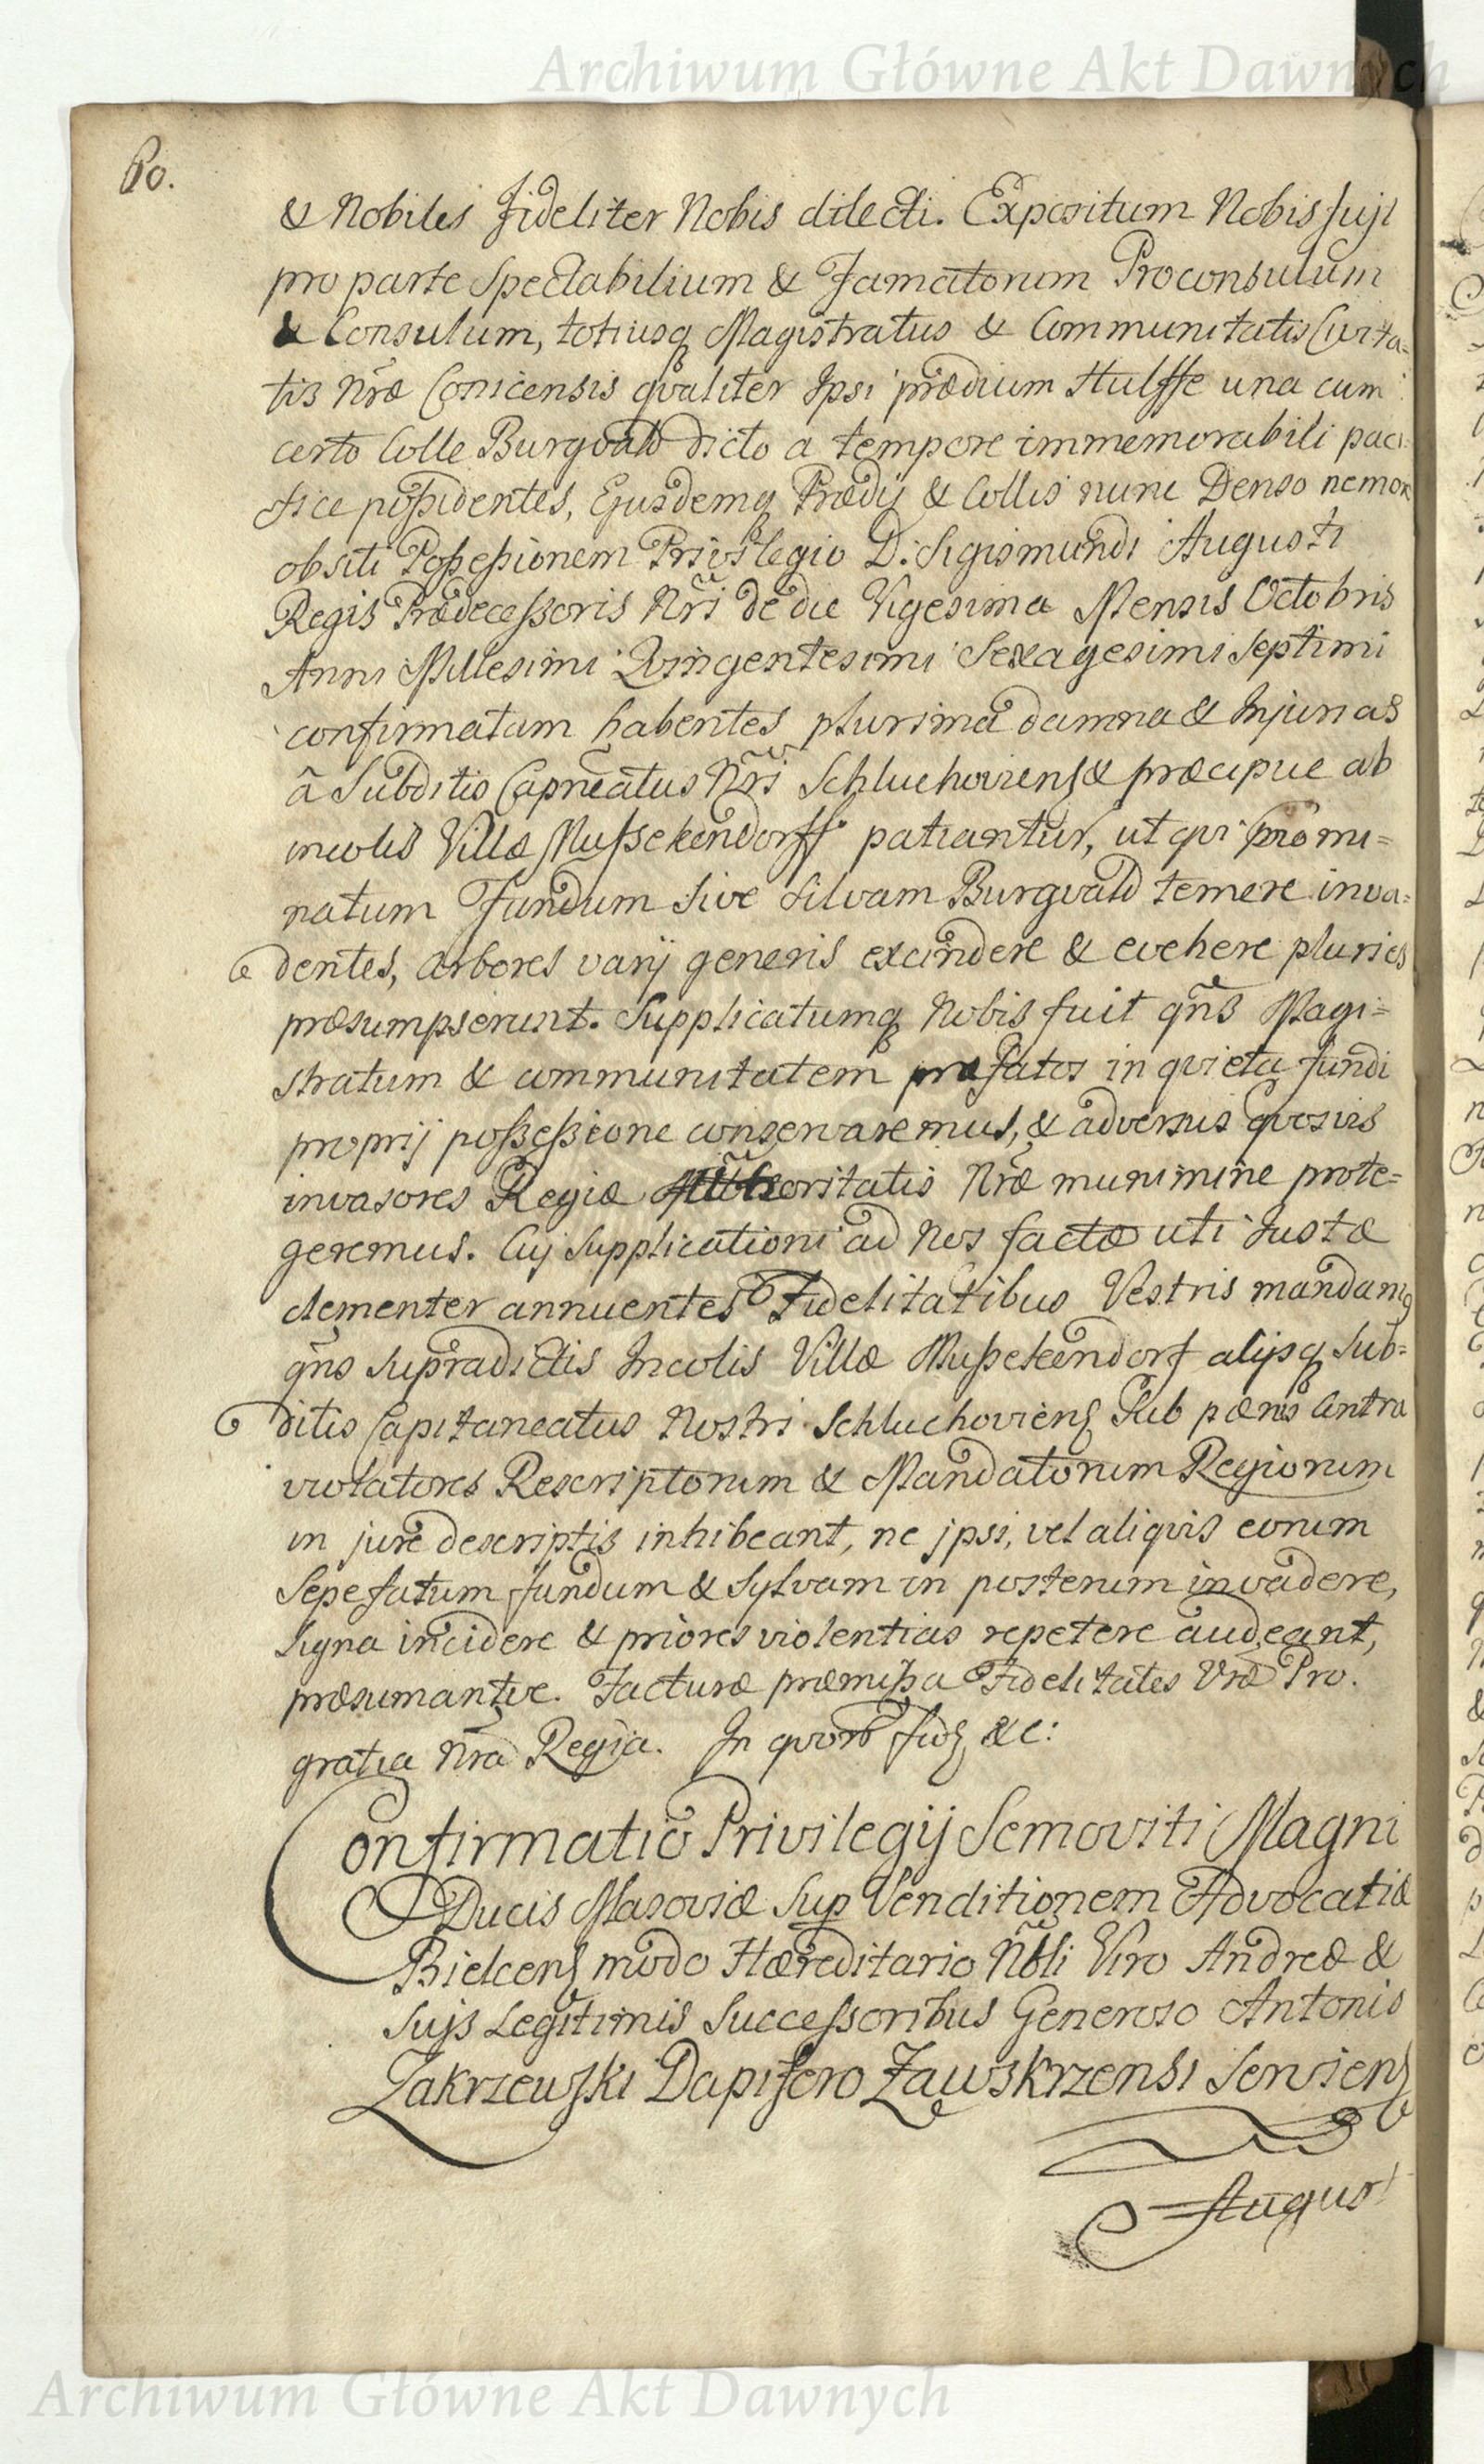 Archiwum Główne Akt Dawnych
60.
& Nobiles Fideliter Nobis dilecti. Expositum Nobis fuit
pro parte Spectabilium & Famatorum Proconsulum
& Consulum, totiusq Magistratus & Communitatis Civita=
tis Nræ Conicensis qvaliter Ipsi prædium Hulffe una cum
certo Colle Burgvald dicto a tempore immemorabili paci=
fice poßidentes, Ejusdemq Prædij & Collis nunc Denso nemore
obsiti Poßeßionem Privilegio D. Sigismundi Augusti
Regis Prædeceßoris Nri de die Vigesima Mensis Octobris
Anni Millesimi Qvingentesimi Sexagesimi Septimi
confirmatam habentes plurima damna & Injurias
â Subditis Capneatus Nri Schluchoviens & præcipue ab
incolis Villæ Mußekendorff patiantur, ut qvi præmi=
natum Fundum sive silvam Burgvald temere inva=
dentes, arbores varij generis excindere & evehere pluries
præsumpserunt. Supplicatumq Nobis fuit qns Magi=
stratum & communitatem præfatos in qvieta fundi
proprij poßeßione conservaremus, & adversus qvosvis
invasores Regiæ Authoritatis Nræ munimine prote=
geremus. Cuj Supplicationi ad Nos factæ uti Justæ
clementer annuentes Fidelitatibus Vestris mandam9
qns supradictis Incolis Villæ Mußekendorf alijsq Sub=
ditis Capitaneatus Nostri Schluchoviens Sub pænis Contra
violatores Rescriptorum & Mandatorum Regiorum
in jure descriptis inhibeant, ne jpsi, vel aliqvis eorum
Sepefatum fundum & Sylvam in posterum invadere,
Signa incidere & priores violentias repetere audeant,
præsumantve. Facturæ præmißa Fidelitates Vræ Pro.
gratia Nra Regia. In qvor fid &c:
Confirmatio Privilegij Semoviti Magni
Ducis Masoviæ Sup Venditionem Advocatiæ
Bielcens modo Hæreditario Nbli Viro Andreæ &
Sujs Legitimis Succeßoribus Generoso Antonio
Zakrzewski Dapifero Zawskrzensi Serviens
August
Archiwum Główne Akt Dawnych